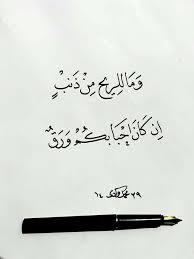 وَمَا لِلرِيحِ مِنْ ذَنْبٍ
إِن كَانَ أَحِبَابكُمْ وَرَقٌ
٢٩ ١٤